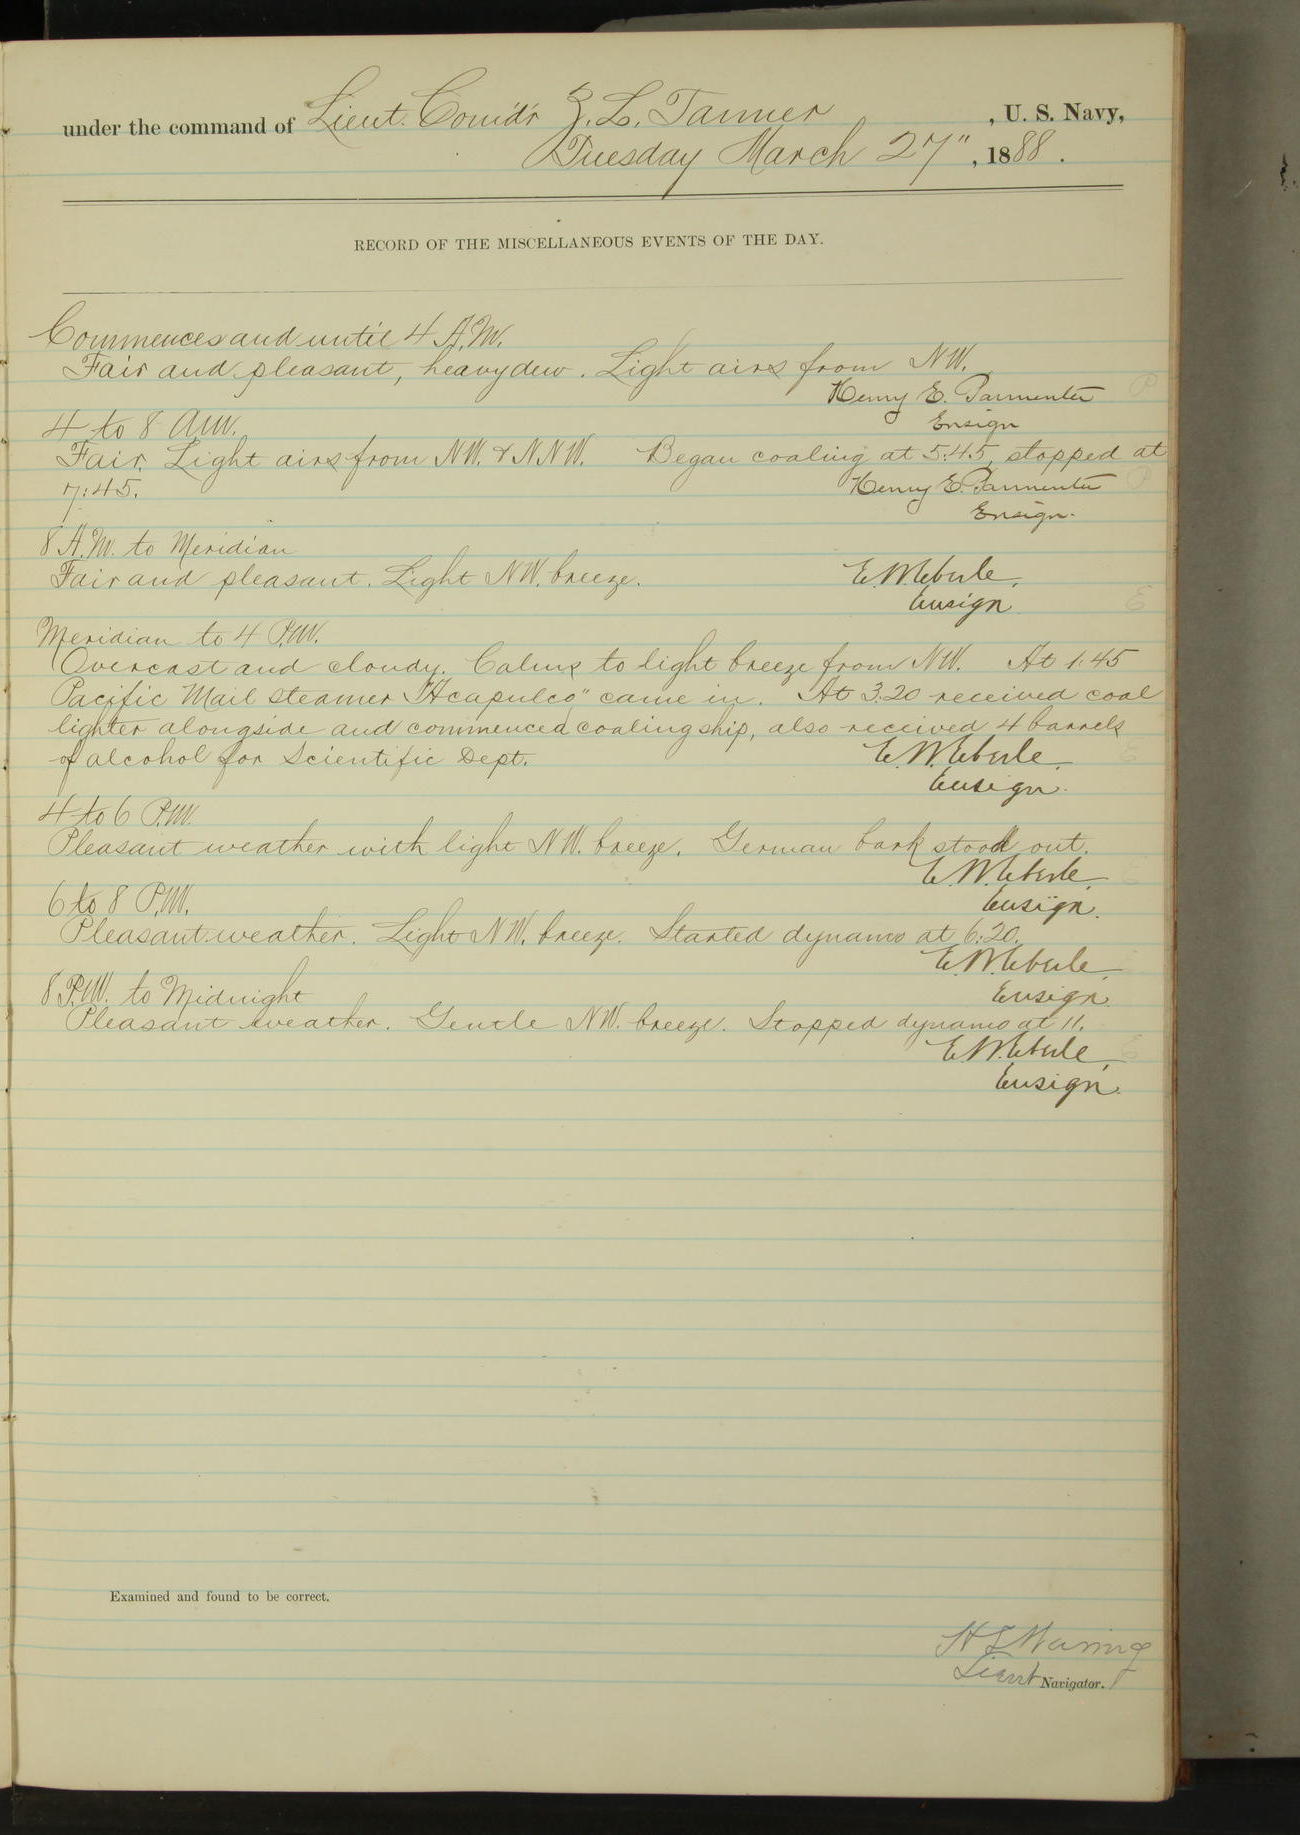 under the command of Lieut. Comd'r Z. L. Tanner, U. S. Navy,
Tuesday March 27", 1888.
RECORD OF THE MISCELLANEOUS EVENTS OF THE DAY.
Commences and until 4 A.M.
Fair and pleasant, heavy dew. Light airs from NW.
Henry E. Parmenter
Ensign
4 to 8 A.M.
Fair. Light airs from NW. & NNW. Began coaling at 5:45, stopped at
7:45.
Henry E. Parmenter
Ensign.
8 A.M. to Meridian
Fair and pleasant. Light NW. breeze.
E. W. Eberle,
Ensign
Meridian to 4 P.M.
Overcast and cloudy. Calms to light breeze from NW. At 1.45
Pacific Mail steamer "Acapulco," came in. At 3.20 received coal
lighter alongside and commenced coaling ship, also received 4 barrels
of alcohol for Scientific Dept.
E. W. Eberle.
Ensign.
4 to 6 P.M.
Pleasant weather with light NW. breeze. German bark stood out.
E. W. Eberle,
Ensign.
6 to 8 P.M.
Pleasant weather. Light NW. breeze. Started dynamo at 6:20.
E. W. Eberle,
Ensign.
8 P.M. to Midnight
Pleasant weather. Gentle NW. breeze. Stopped dynamo at 11.
E. W. Eberle,
Ensign.
Examined and found to be correct.
H S Waring
Lieut Navigator.